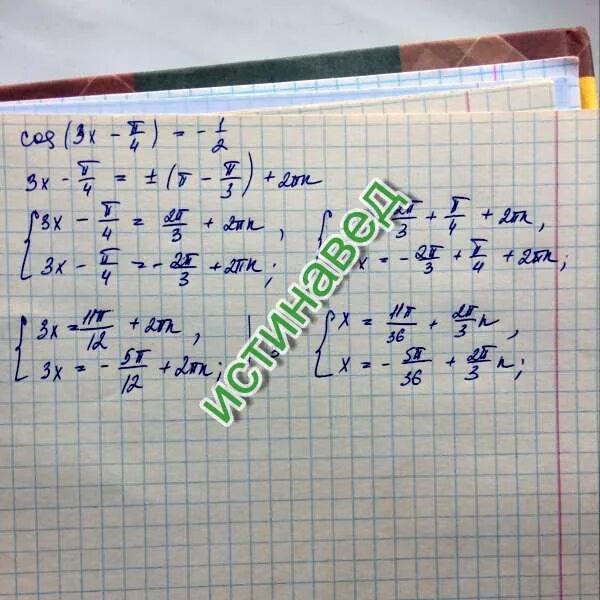 cos(3x - π/4) = - 1/2
3x - π/4 = ±(π - π/3) + 2πn
{ 3x - π/4 = 2π/3 + 2πn, { 2π/3 + π/4 + 2πn,
3x - π/4 = - 2π/3 + 2πn; x = - 2π/3 + π/4 + 2πn;
{ 3x = 11π/12 + 2πn, { x = 11π/36 + 2π/3 n,
3x = - 5π/12 + 2πn; x = - 5π/36 + 2π/3 n;
ИСТИНАВЕД